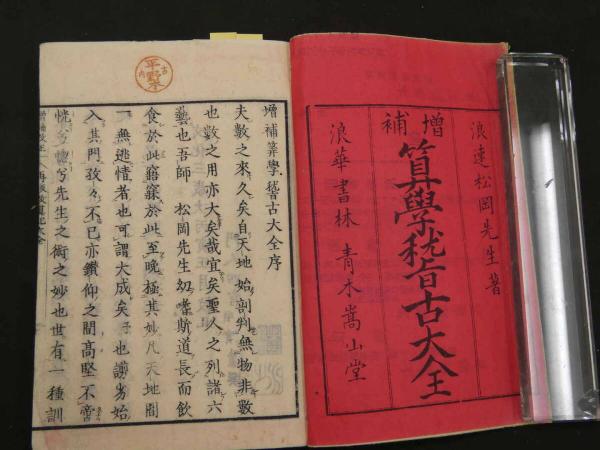 浪速松岡先生著
增補
算學稽古大全
浪華書林 青木嵩山堂
增補算學稽古大全序
夫數之來久矣自天地始剖判無物非數
也數之用亦大矣哉宜矣聖人之列諸六
藝也吾師 松岡先生幼嗜斯道長而飲
食於此寤寐於此至晚極其妙凡天地間
一無逃情者也可謂大成矣予也謭劣始
入其門孜々不已亦鑽仰之間高堅不啻
恍兮惚兮先生之術之妙也世有一種訓
平野本